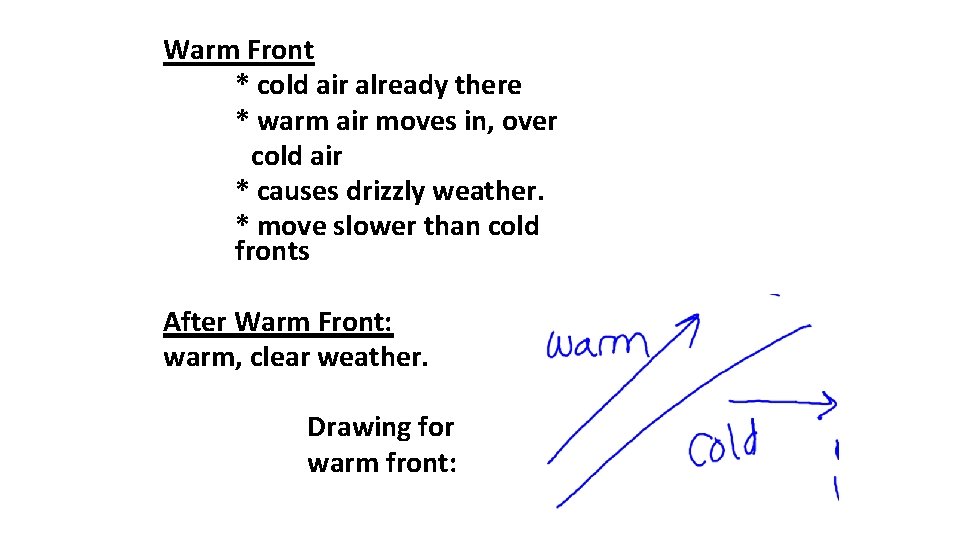 Warm Front
* cold air already there
* warm air moves in, over
cold air
* causes drizzly weather.
* move slower than cold
fronts
After Warm Front:
warm, clear weather.
Drawing for
warm front:
warm
cold